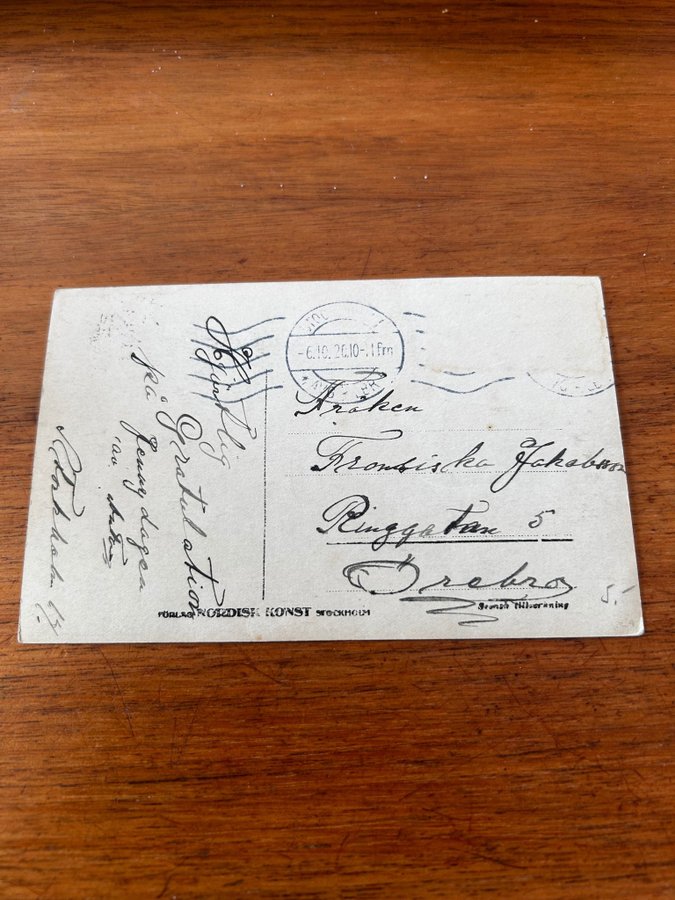 Hjärtlig
Gratulation
på Jenny dagen
av
Stockholm
-6.10.26.10-11 Fm
Fröken
Jakobsson
Ringgatan 5
Örebro
5:-
FÖRLAG NORDISK KONST STOCKHOLM
Svensk tillverkning